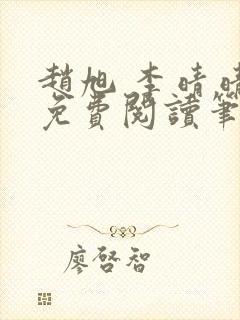 趙旭 李晴晴
免費閱讀筆
廖啓智